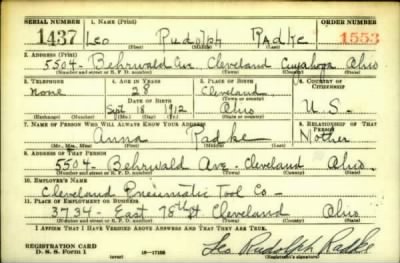 SERIAL NUMBER 1. NAME (Print) ORDER NUMBER
1437 Leo Rudolph Radke 1553
(First) (Middle) (Last)
2. ADDRESS (Print)
5504- Behrwald Ave Cleveland Cuyahoga Ohio
(Number and street or R. F. D. number) (Town) (County) (State)
3. TELEPHONE 4. AGE IN YEARS 5. PLACE OF BIRTH 6. COUNTRY OF CITIZENSHIP
none 28 Cleveland
(Town or county)
DATE OF BIRTH
Sept 18 1912 Ohio U.S.
(Exchange) (Number) (Mo.) (Day) (Yr.) (State or country)
7. NAME OF PERSON WHO WILL ALWAYS KNOW YOUR ADDRESS 8. RELATIONSHIP OF THAT PERSON
Anna Radke Mother
(Mr., Mrs., Miss) (First) (Middle) (Last)
9. ADDRESS OF THAT PERSON
5504- Behrwald Ave- Cleveland Ohio.
(Number and street or R. F. D. number) (Town) (County) (State)
10. EMPLOYER'S NAME
Cleveland Pneumatic Tool Co-
11. PLACE OF EMPLOYMENT OR BUSINESS
3734- East 78th St Cleveland Ohio
(Number and street or R. F. D. number) (Town) (County) (State)
I AFFIRM THAT I HAVE VERIFIED ABOVE ANSWERS AND THAT THEY ARE TRUE.
REGISTRATION CARD
D. S. S. Form 1 (over) Leo Rudolph Radke
(Registrant's signature)